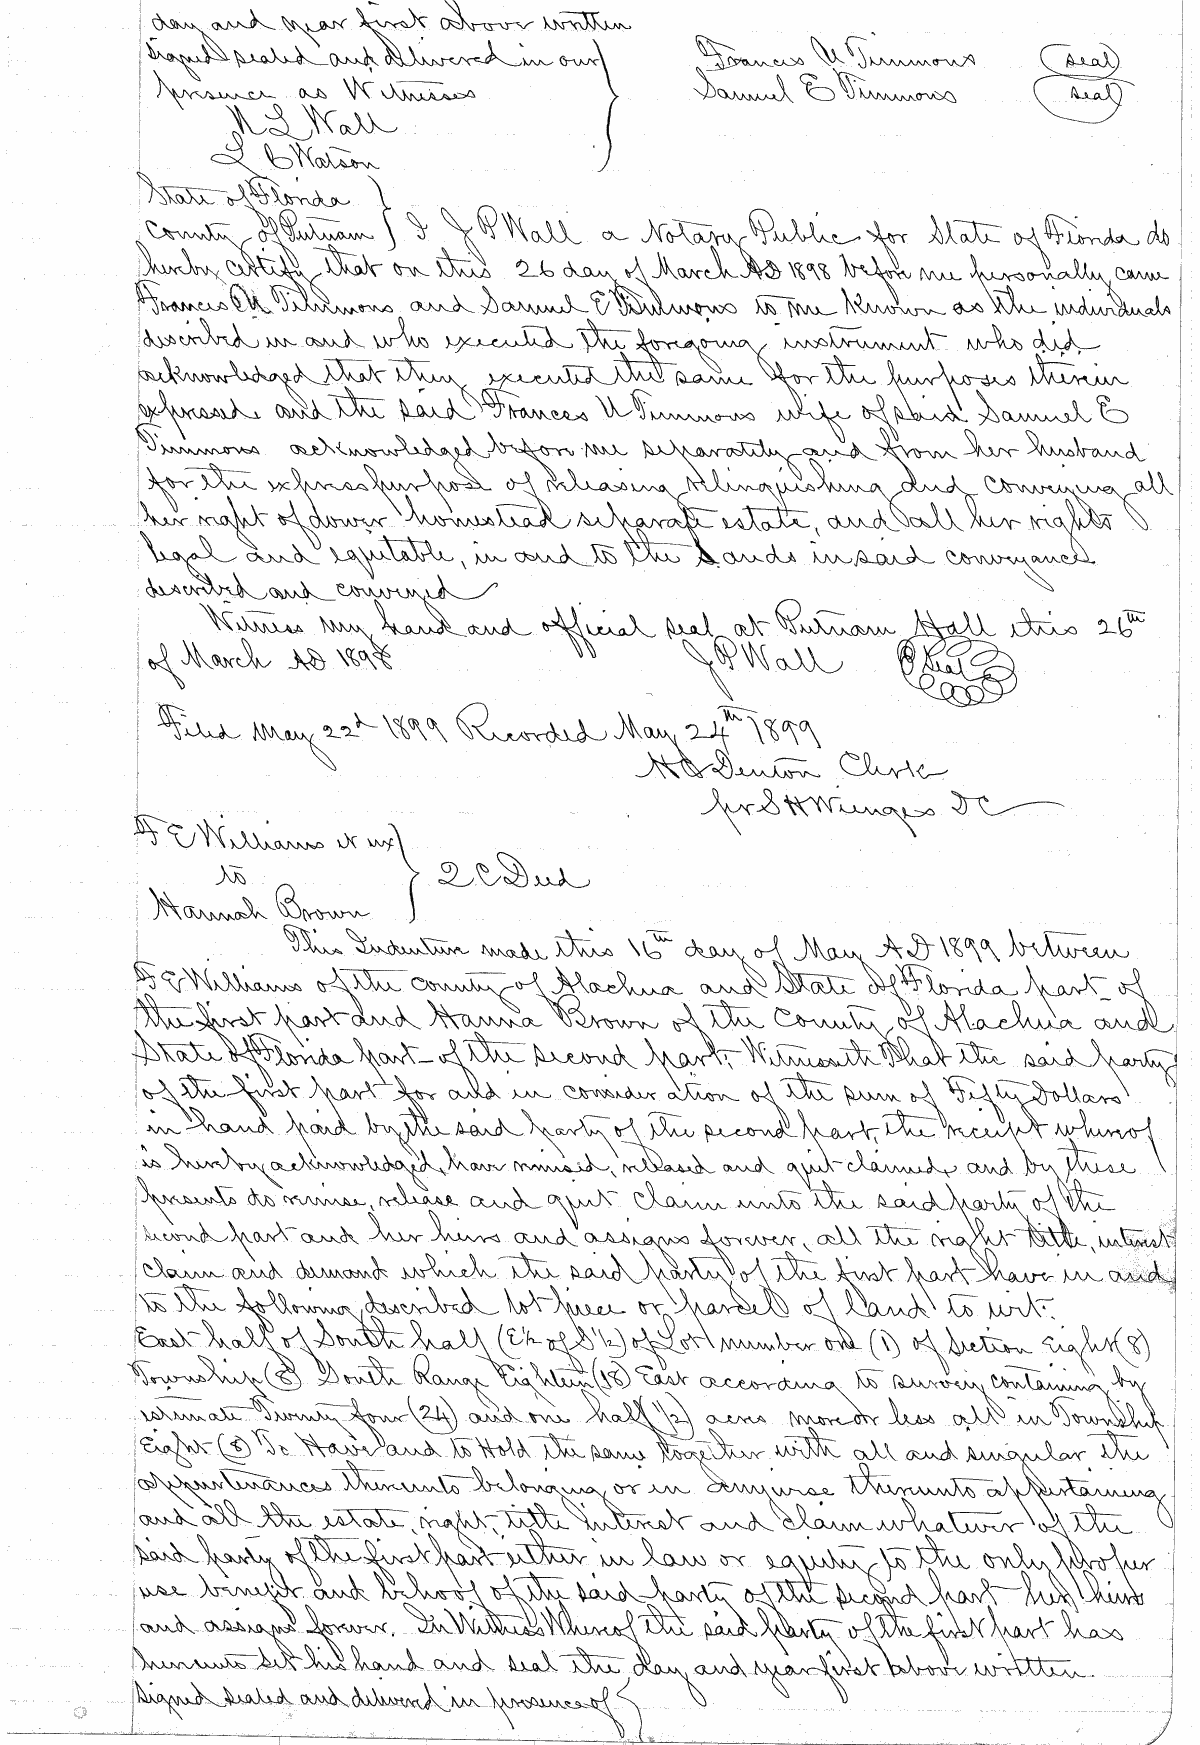 day and year first above written
Signed sealed and delivered in our
presence as Witnesses
Frances U Timmons (seal)
Samuel E Timmons (seal)
N L Wall
L C Watson
State of Florida
County of Putnam } I J P Wall a Notary Public for State of Florida do
hereby certify that on this 26 day of March AD 1898 before me personally came
Frances U Timmons and Samuel E Timmons to me known as the individuals
described in and who executed the foregoing instrument who did
acknowledged that they executed the same for the purposes therein
expressed and the said Frances U Timmons wife of said Samuel E
Timmons acknowledged before me separately and from her husband
for the express purpose of releasing relinquishing and conveying all
her right of dower homestead separate estate, and all her rights
legal and equitable, in and to the Lands in said conveyance
described and conveyed
Witness my hand and official seal at Putnam Hall this 26th
of March AD 1898 J P Wall Seal
Filed May 22d 1899 Recorded May 24th 1899
Denton Clerk
pr S H Wienges D C
F E Williams et ux
to } Q C Deed
Hannah Brown
This Indenture made this 16th day of May A.D 1899 between
F E Williams of the County of Alachua and State of Florida part_ of
the first part and Hanna Brown of the County of Alachua and
State of Florida part_ of the second part; Witnesseth That the said party
of the first part for and in consideration of the sum of Fifty Dollars
in hand paid by the said party of the second part, the receipt whereof
is hereby acknowledged, have remised, released and quit claimed, and by these
presents do remise, release and quit claim unto the said party of the
second part and her heirs and assigns forever, all the right title, interest
claim and demand which the said party of the first part have in and
to the following described lot piece or parcel of land to wit:
East half of South half (E½ of S½) of Lot number one (1) of Section Eight (8)
Township (8) South Range Eighteen (18) East according to survey containing by
estimate Twenty four (24) and one half (½) acres more or less all in Township
Eight (8) To Have and to Hold the same together with all and singular the
appurtenances thereunto belonging or in anywise thereunto appertaining
and all the estate, right, title interest and claim whatever of the
said party of the first part either in law or equity to the only proper
use benefit and behoof of the said party of the second part her heirs
and assigns forever. In Witness Whereof the said party of the first part has
hereunto set his hand and seal the day and year first above written.
Signed sealed and delivered in presence of